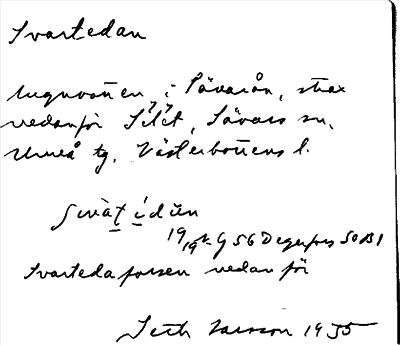 Svartedan
lugnvatten i Sävarån, strax
nedanför Sélét, Sävars sn,
Umeå tg, Västerbottens l.
19 G 56 Degerfors SO
Svartedaforsen nedanför
Seth Larsson 1935